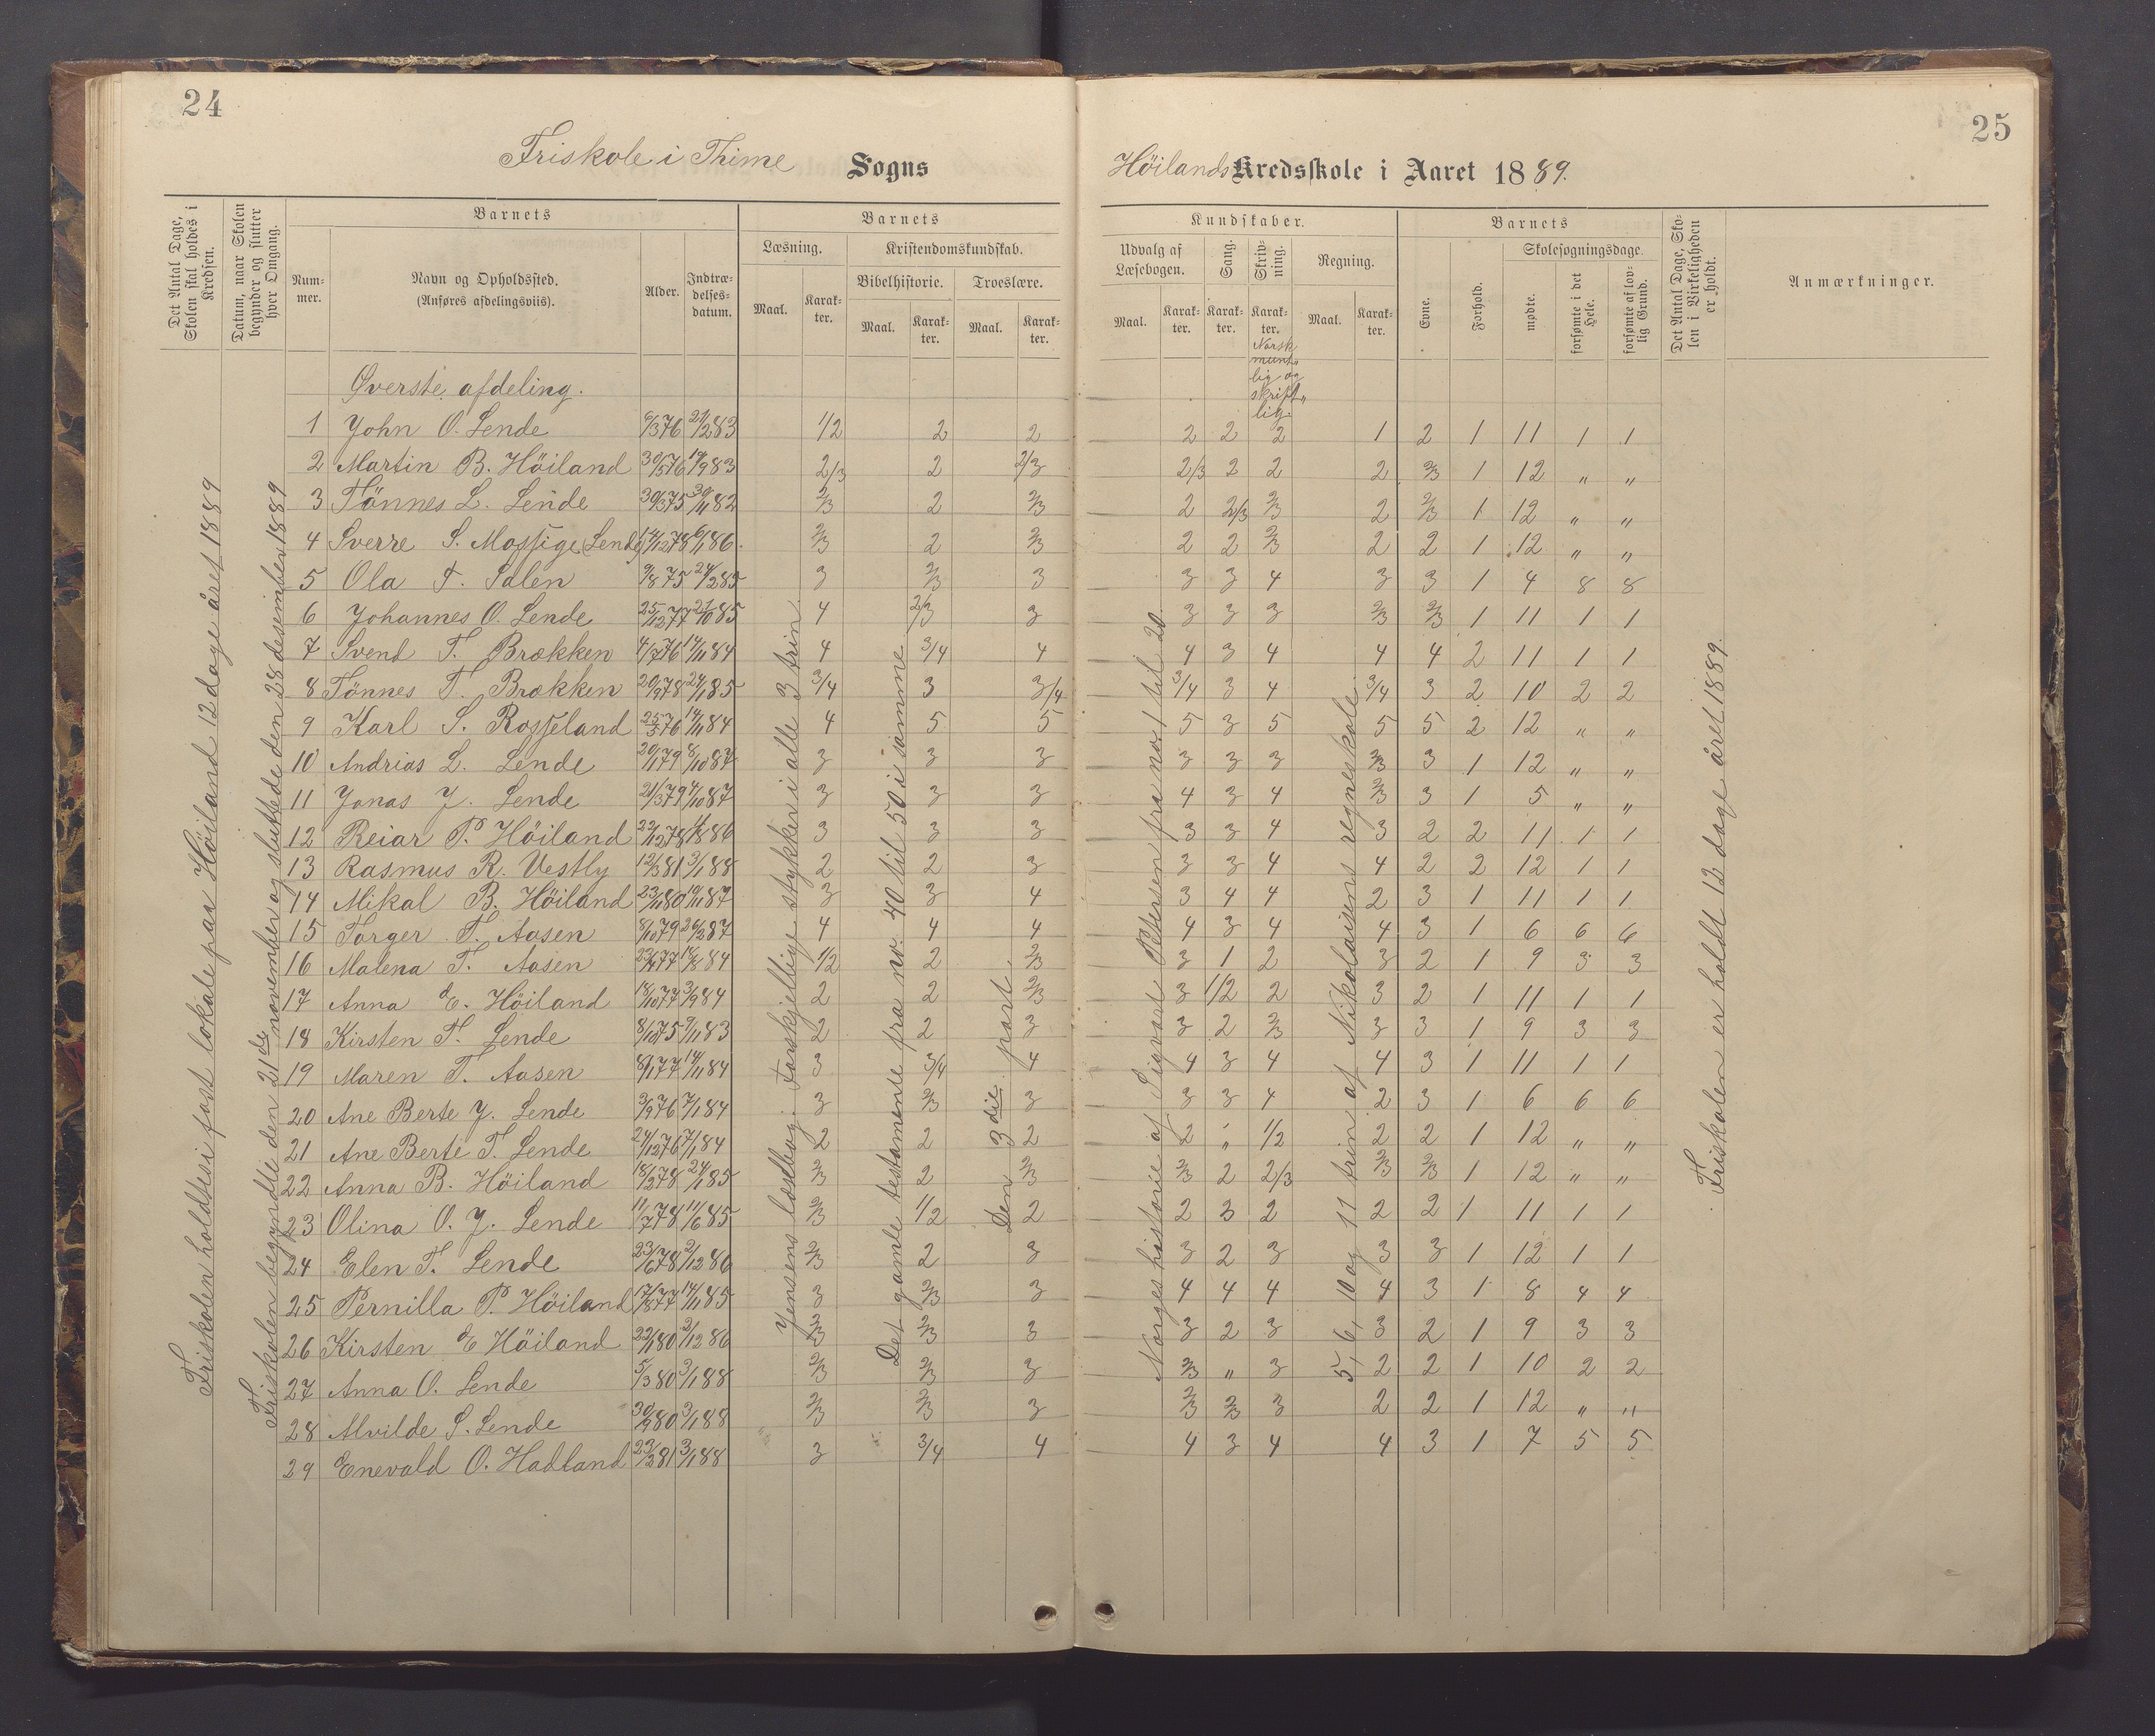 24
25
Friskole i Thime Sogns
Höilands Kredsskole i Aaret 1889.
Det Antal Dage, Skolen skal holdes i Kredsen.
Datum, naar Skolen begynder og slutter hver Omgang.
Barnets
Num-mer.
Navn og Opholdssted.
(Anføres afdelingsviis).
Alder.
Indtræ-delses-datum.
Barnets
Læsning.
Kristendomskundskab.
Bibelhistorie.
Troeslære.
Maal. Karak-ter. Maal. Karak-ter. Maal. Karak-ter.
Kundskaber.
Udvalg af Læsebogen.
Sang.
Skriv-ning.
Regning.
Maal. Karak-ter. Karak-ter. Karak-ter. Maal. Karak-ter.
Norsk munt„lig og skrift„lig.
Barnets
Evne.
Forhold.
Skolesøgningsdage.
mødte.
forsømte i det Hele.
forsømte af lov-lig Grund.
Det Antal Dage, Sko-len i Virkeligheden er holdt.
Anmærkninger.
Friskolen holdtes i fast lokale paa Höiland 12 dage året 1889
Friskolen begyndte den 21de november og sluttede den 28 desember 1889
Jensens læsebog. Forskjellige stykker i alle 3 trin.
Det gamle testamente fra no. 40 til 50 i samme
Den 3die part
Norges historie af Sigvart Petersen fra no. 1 til 20.
5, 6, 10 og 11 trin af Nikolaisens regneskole
Friskolen er holdt 12 dage året 1889.
Øverste afdeling.
1 John O. Lende 6/3 76 21/2 83 1/2 2 2 2 2 2 1 2 1 11 1 1
2 Martin B. Höiland 30/5 76 19/9 83 2/3 2 2/3 2/3 2 2 2 2/3 1 12 „ „
3 Tönnes L. Lende 30/3 75 30/11 82 2/3 2 2/3 2 2/3 2/3 2 2/3 1 12 „ „
4 Sverre S. Mossige (Lende) 14/12 78 6/1 86. 2/3 2 2/3 2 2 2/3 2 2 1 12 „ „
5 Ola T. Salen 9/8 75 24/2 85 3 2/3 3 3 3 4 3 3 1 4 8 8
6 Johannes O. Lende 25/12 77 21/10 85 4 2/3 3 3 3 3 2/3 2/3 1 11 1 1
7 Svend T. Brækken 4/7 76 14/11 84 4 3/4 4 4 3 4 4 4 2 11 1 1
8 Tönnes T. Brækken 20/9 78 24/1 85 3/4 3 3/4 3/4 3 4 3/4 3 2 10 2 2
9 Karl S. Rosseland 25/5 76 14/11 84 4 5 5 5 3 5 5 5 2 12 „ „
10 Andrias L. Lende 20/1 79 8/10 87 3 3 3 3 3 3 2/3 3 1 12 „ „
11 Jonas J. Lende 21/3 79 4/10 87 3 3 3 4 3 4 2/3 3 1 5 „ „
12 Reiar P. Höiland 22/12 78 11/8 86 3 3 3 3 3 4 3 2 2 11 1 1
13 Rasmus R. Vestly 12/3 81 3/1 88 2 2 3 3 3 4 4 2 2 12 1 1
14 Mikal B. Höiland 23/1 80 19/11 87 3 3 4 3 4 4 2 3 1 11 1 1
15 Torger T. Aasen 8/10 79 26/3 87 4 4 4 4 3 4 4 3 1 6 6 6
16 Malena T. Aasen 23/4 77 14/8 84 1/2 2 2/3 3 1 2 3 2 1 9 3 3
17 Anna E. Höiland 18/10 77 3/9 84 2 2 2/3 3 1/2 2 3 2 1 11 1 1
18 Kirsten T. Lende 8/10 75 9/11 83 2 2 3 3 2 2/3 3 3 1 9 3 3
19 Maren T. Aasen 8/1 77 14/11 84 3 3/4 4 4 3 4 4 3 1 11 1 1
20 Ane Berte J. Lende 3/9 76 7/1 84 3 2/3 3 3 3 4 2 3 1 6 6 6
21 Ane Berte T. Lende 24/12 76 7/1 84 2 2 2 2 „ 1/2 2 2 1 12 „ „
22 Anna B. Höiland 18/3 78 24/1 85 2/3 2 2/3 2/3 2 2/3 2/3 2/3 1 12 „ „
23 Olina O. J. Lende 11/7 78 11/6 85 2/3 1/2 2 2 3 2 2 2 1 11 1 1
24 Elen T. Lende 23/6 78 2/12 86 2/3 2 3 3 2 3 3 3 1 12 1 1
25 Pernilla P. Höiland 17/8 77 14/11 85 3 2/3 3 4 4 4 4 3 1 8 4 4
26 Kirsten E Höiland 22/1 80 2/12 86 2/3 2/3 3 3 2 3 3 2 1 9 3 3
27 Anna O. Lende 5/3 80 3/1 88 2/3 2/3 3 2/3 „ 3 2 2 1 10 2 2
28 Alvilde S. Lende 30/9 80 3/1 88 2/3 2/3 3 2/3 2/3 3 2 2 1 12 „ „
29 Enevald O. Hadland 23/2 81 3/1 88 3 3/4 4 4 3 4 4 3 1 7 5 5